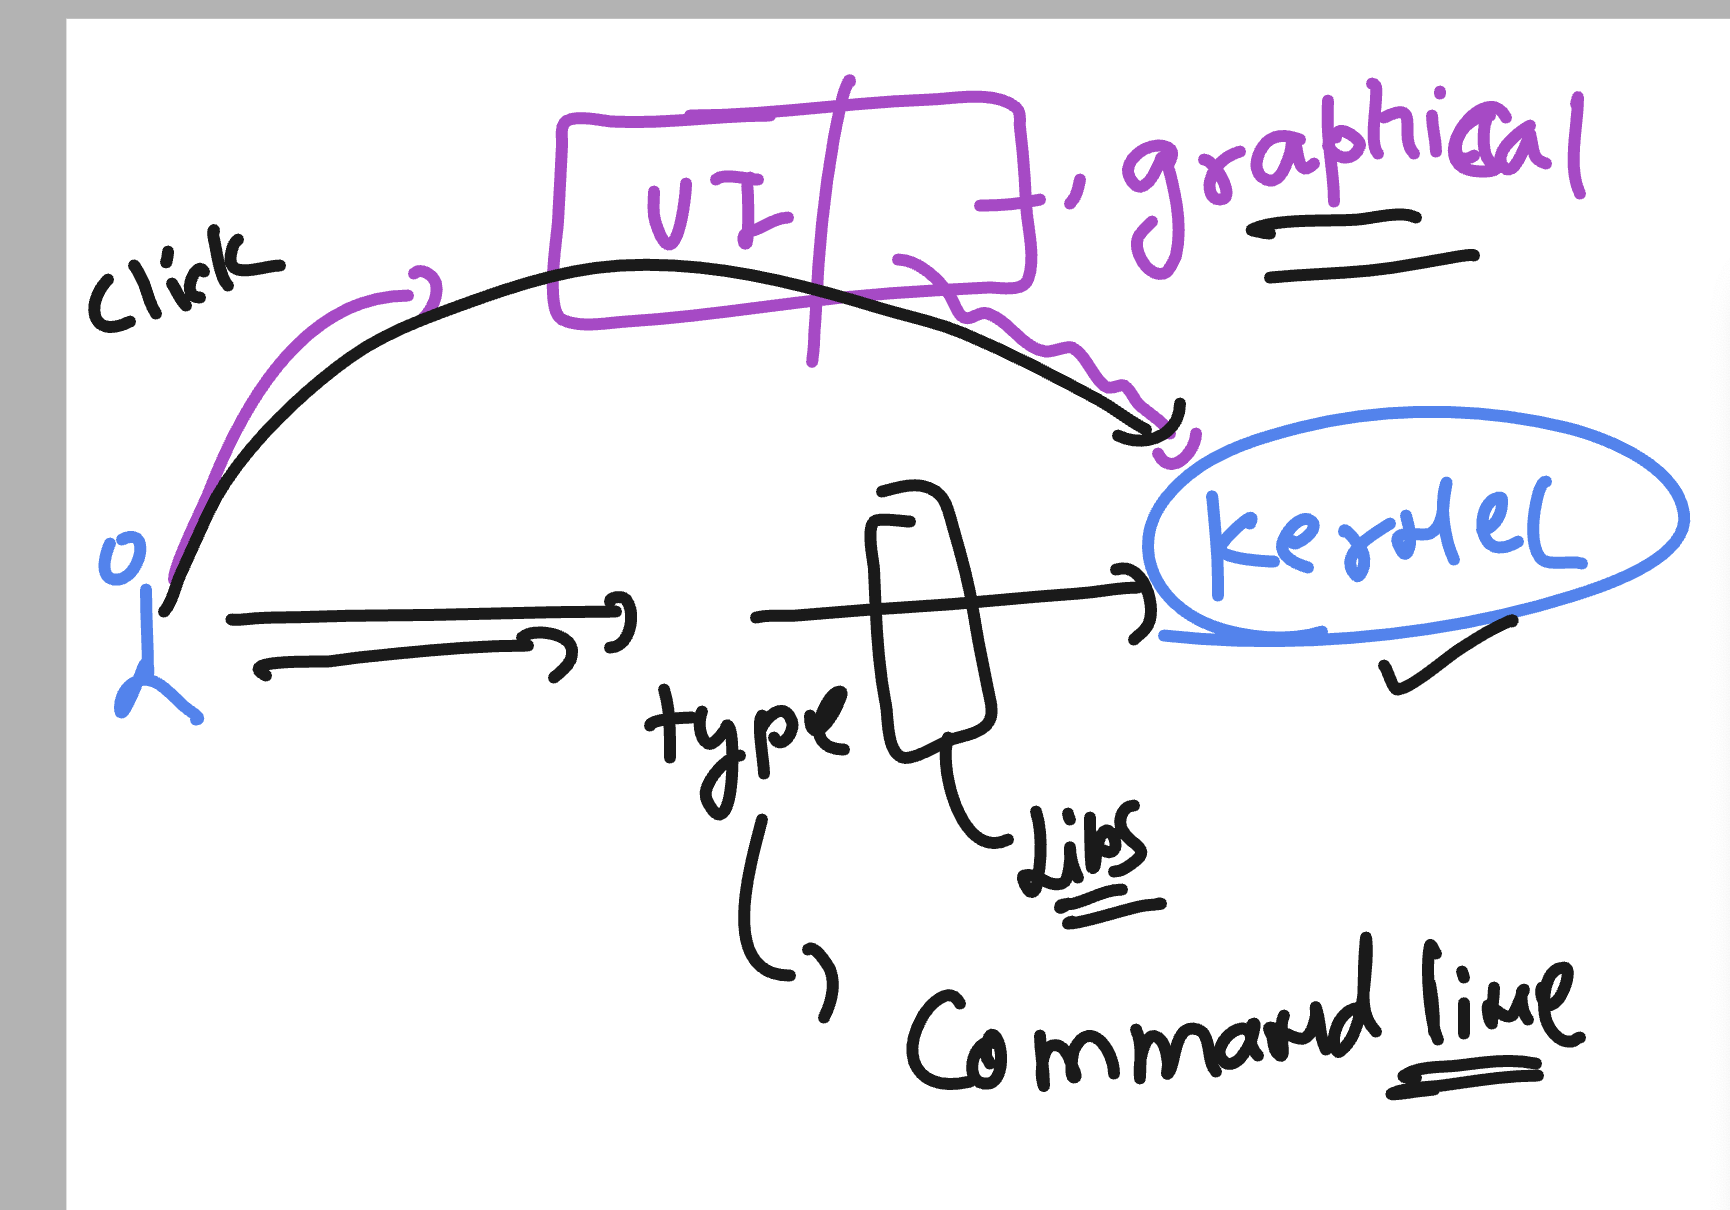 graphical
UI
Click
Kernel
type
Libs
Command line